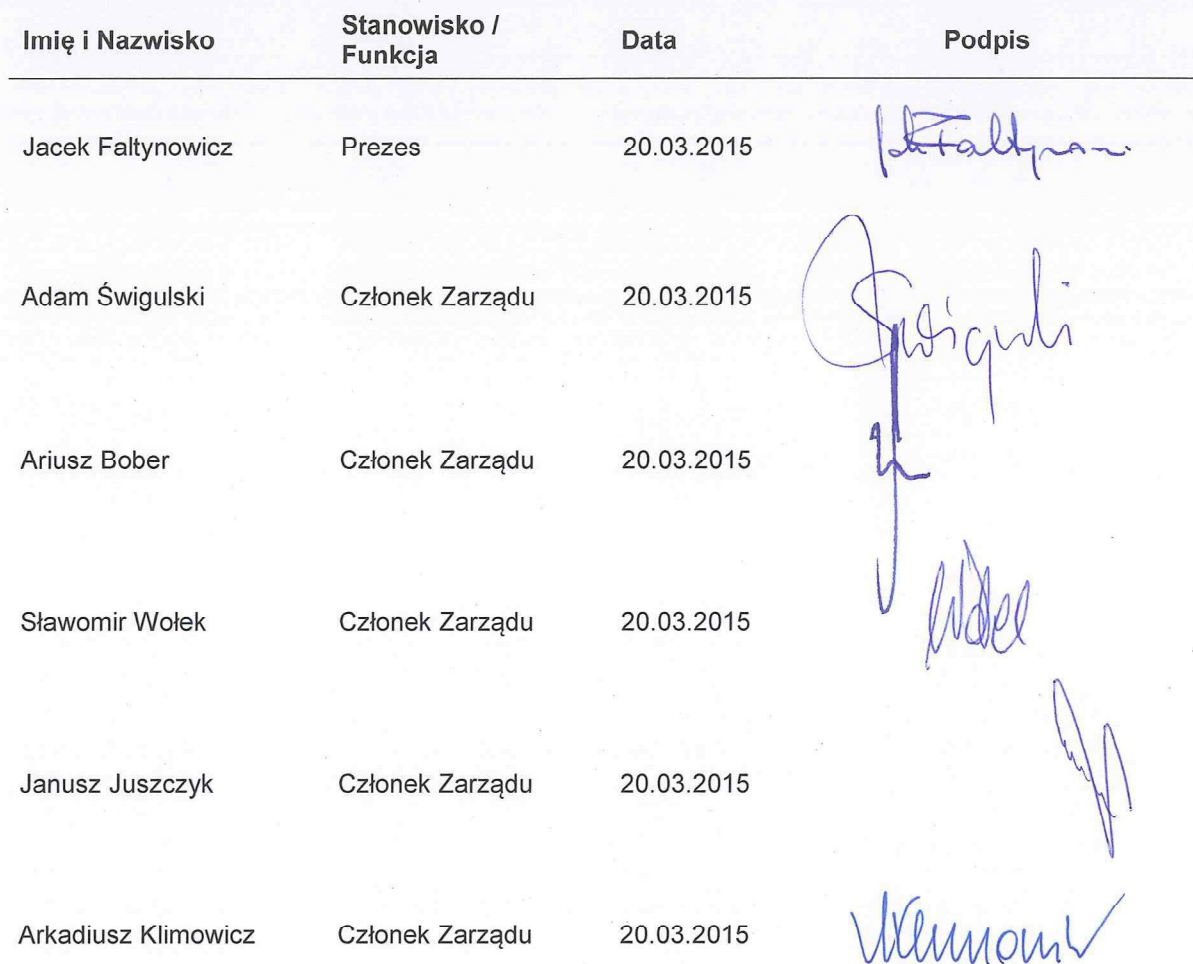 Imię i Nazwisko Stanowisko / Funkcja Data Podpis
Jacek Faltynowicz Prezes 20.03.2015
Adam Świgulski Członek Zarządu 20.03.2015
Ariusz Bober Członek Zarządu 20.03.2015
Sławomir Wołek Członek Zarządu 20.03.2015 Wołek
Janusz Juszczyk Członek Zarządu 20.03.2015
Arkadiusz Klimowicz Członek Zarządu 20.03.2015